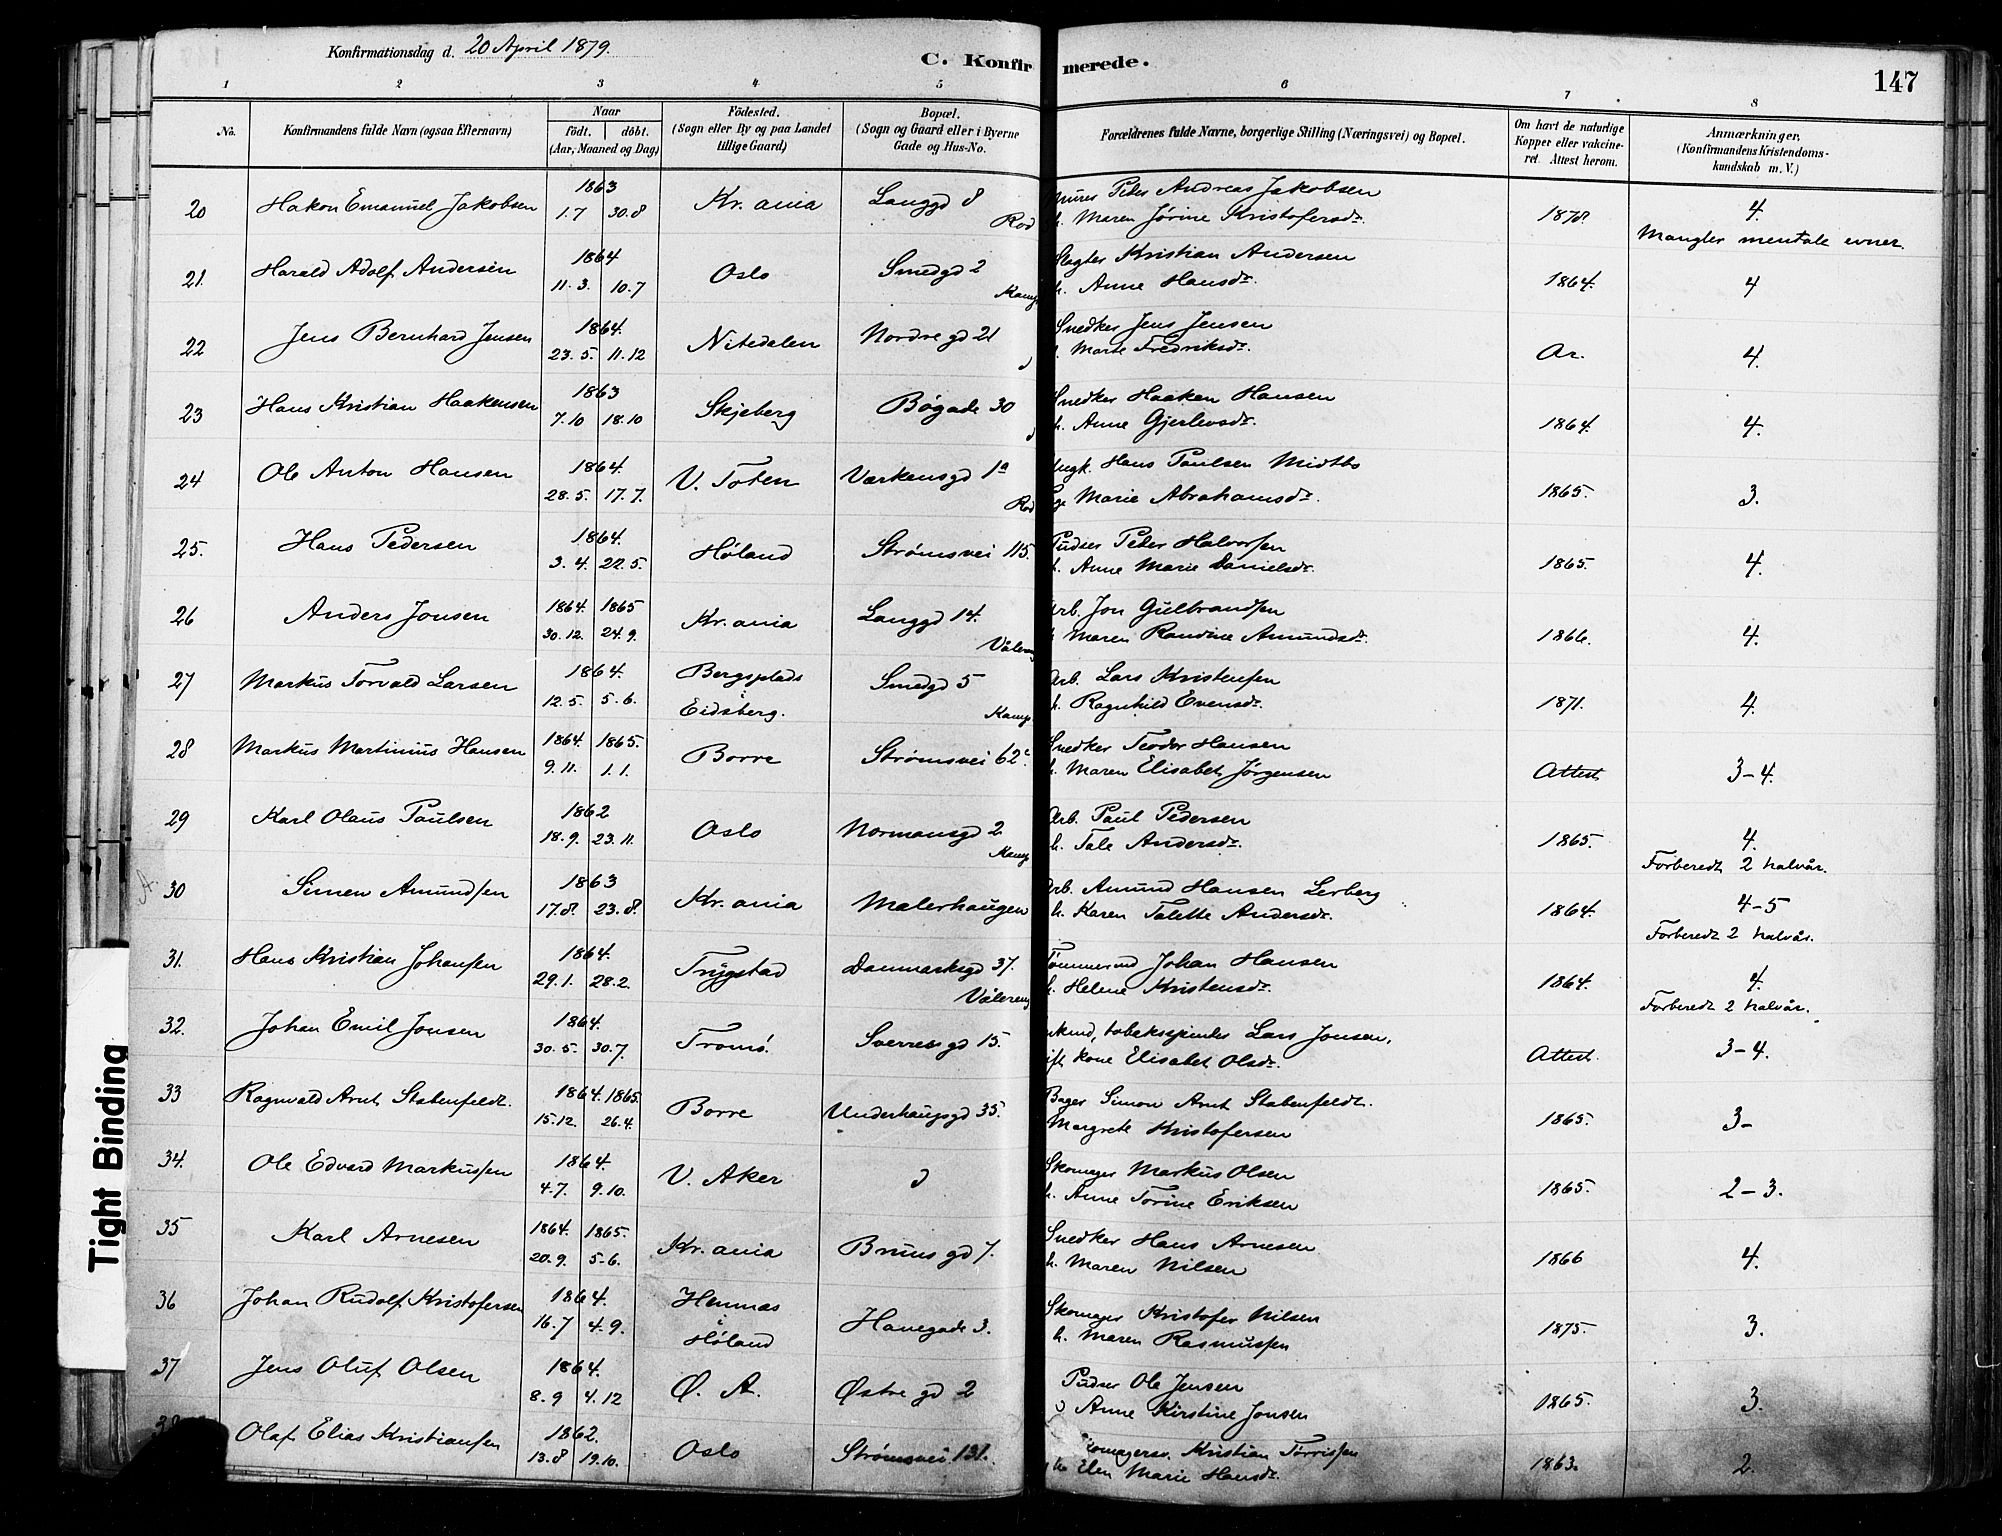 Konfirmationsdag d. 20 April 1879.
C. Konfirmerede.
147
1 2 3 4 5 6 7 8
No.
Konfirmandens fulde Navn (ogsaa Efternavn)
Naar
födt. | döbt.
(Aar, Maaned og Dag)
Födested.
(Sogn eller By og paa Landet
tillige Gaard)
Bopæl.
(Sogn og Gaard eller i Byerne
Gade og Hus-No.
Forældrenes fulde Navne, borgerlige Stilling (Næringsvei) og Bopæl.
Om havt de naturlige
Kopper eller vakcine-
ret. Attest herom.
Anmærkninger.
(Konfirmandens Kristendoms-
kundskab m. V.)
20 Hakon Emanuel Jakobsen 1863 1.7 30.8 Kr.ania Langgd 8 Peter Andreas Jakobsen
Maren Jörine Kristofersd. 4.
Mangler mentale evner.
21. Harald Adolf Andersen 1864 11.3. 10.7 Oslo Smedgd 2 Kamp Slagter Kristian Andersen
h. Anne Hansd. 1864. 4
22 Jens Bernhard Jensen 1864. 23.5. 11.12 Nitedalen Nordre gd 21 Snedker Jens Jensen
Marte Fredriksd. Ar. 4.
23 Hans Kristian Haakensen 1863 7.10 18.10 Skjeberg Bögade 30 Snedker Haaken Hansen
h. Anne Gjerlevsd. 1864. 4.
24 Ole Anton Hansen 1864. 28.5. 17.7. V. Toten Værkensgd 1a Rod Hans Paulsen Midtbö
Marie Abrahamsd. 1865. 3.
25. Hans Pedersen 1864. 3.4. 22.5. Höland Strömsvei 115 Pudser Peter Halvorsen
h. Anne Marie Danielsd. 1865. 4.
26 Anders Jonsen 1864. 1865 30.12. 24.9. Kr.ania Langgd 14. Våleren Arb. Jon Gulbrandsen
Maren Randine Amundsd. 1866. 4.
27 Markus Torvald Larsen 1864. 12.5. 5.6. Bergsplads i Eidsberg. Smedgd 5 Kamp Arb. Lars Kristensen
h. Ragnhild Evensd. 1871. 4.
28 Markus Martinius Hansen 1864. 1865. 9.11. 1.1. Borre Strömsvei 62c Snedker Teodor Hansen
h. Maren Elisabet Jörgensen Attest 3-4.
29 Karl Olaus Paulsen 1862 18.9. 23.11. Oslo Normansgd 2 Kamp Arb. Paul Pedersen
h. Tale Andersd. 1865. 4.
Forberedt 2 halvår.
30 Simen Amundsen 1863 17.8. 23.8. Kr.ania Malerhaugen Arb. Amund Hansen Lerberg
h. Karen Talette Andersd. 1864. 4-5
Forberedt 2 halvår.
31. Hans Kristian Johansen 1864. 29.1. 28.2. Trygstad Danmarksgd 37. Våleren Tömmermd Johan Hansen
h. Helene Kristensd. 1864. 4.
Forberedt 2 halvår.
32. Johan Emil Jonsen 1864. 30.5. 30.7. Tromö. Sverres gd 15. tobaksspinder Lars Jonsen,
kone Elisabet Olsd. Attest. 3-4.
33 Ragnvald Arnt Stabenfeldt. 1864. 1865. 15.12. 26.4. Borre Underhaugsgd 35. Bager Simon Arnt Stabenfeldt.
Margrete Kristofersen 1865. 3-
34. Ole Edvard Markussen 1864. 4.7. 9.10. V. Aker Skomager Markus Olsen
h. Anne Torine Eriksen 1865. 2-3.
35 Karl Arnesen 1864. 1865. 20.9. 5.6. Kr.ania Bruns gd 7. Snedker Hans Arnesen
h. Maren Nilsen 1866 4.
36 Johan Rudolf Kristofersen 1864. 16.7 4.9. Hemnæs i Höland Hanegade 3. Skomager Kristofer Nilsen
h. Maren Rasmussen 1875. 3.
37 Jens Oluf Olsen 1864. 8.9 4.12 Ö. A. Östre gd 2 Pudser Ole Jensen
Anne Kirstine Jonsen 1865. 3.
Olaf Elias Kristiansen 1862. 13.8 19.10. Oslo Strömsvei 131. Kristian Torrissen
Elen Marie Hansd. 1863. 2.
Tight Binding